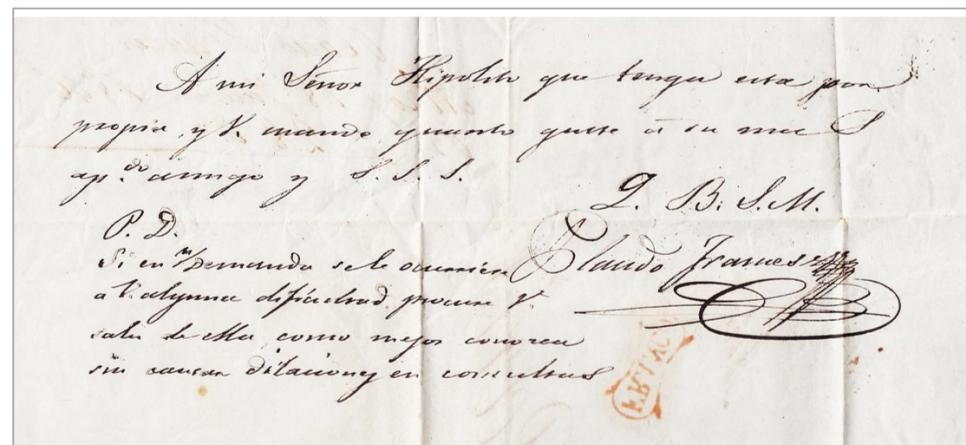 A mi Señor Hipolito que tenga esta por
propia, y V. mande quanto guste á su mu S
ap.do amigo y S. S. S.
Q. B. S. M.
P. D.
Si en Demanda se le ocurriere
a V. alguna dificultad, procure V.
salir de ella como mejor conozca
sin causar dilacion en consultas
Claudo Frances